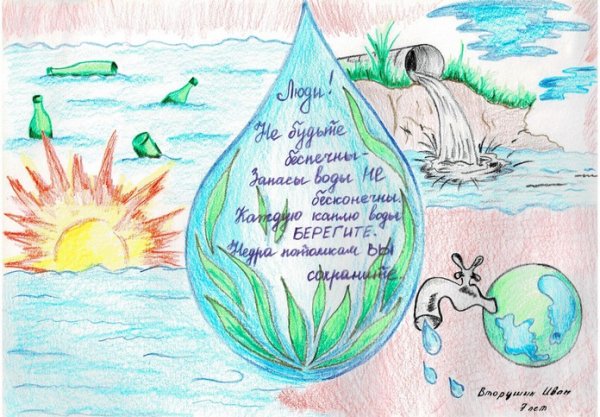 Люди!
Не будьте
беспечны -
Запасы воды НЕ
бесконечны.
Каждую каплю воды
БЕРЕГИТЕ.
Недра потомкам ВЫ
сохраните.
Вторушин Иван
7 лет